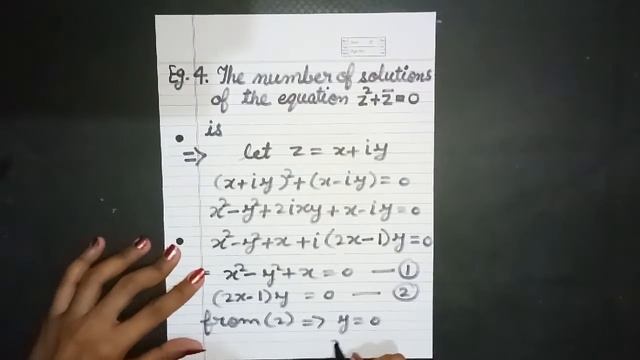 Eg. 4. The number of solutions
of the equation z²+z̅=0
is
=> let z = x+iy
(x+iy)²+(x-iy)=0
x²-y²+2ixy+x-iy=0
x²-y²+x+i(2x-1)y=0
= x²-y²+x=0 — ①
(2x-1)y = 0 — ②
from (2) => y=0